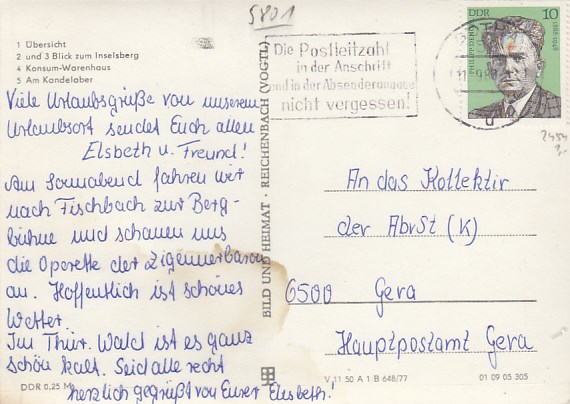 5801
1 Übersicht
2 und 3 Blick zum Inselsberg
4 Konsum-Warenhaus
5 Am Kandelaber
Viele Urlaubsgrüße von unserem
Urlaubsort sendet Euch allen
Elsbeth u. Freund!
Am Sonnabend fahren wir
nach Fischbach zur Berg-
bühne und schauen uns
die Operette der Zigeunerbaron
an. Hoffentlich ist schönes
Wetter.
Im Thür. Wald ist es ganz
schön kalt. Seid alle recht
herzlich gegrüßt von Eurer Elsbeth!
DDR 0,25 M
BILD UND HEIMAT · REICHENBACH (VOGTL)
Die Postleitzahl
in der Anschrift
und in der Absenderangabe
nicht vergessen!
DDR 10
1888-1948
2454
An das Kollektiv
der AbrSt (K)
6500 Gera
Hauptpostamt Gera
V 11 50 A 1 B 648/77
01 09 05 305